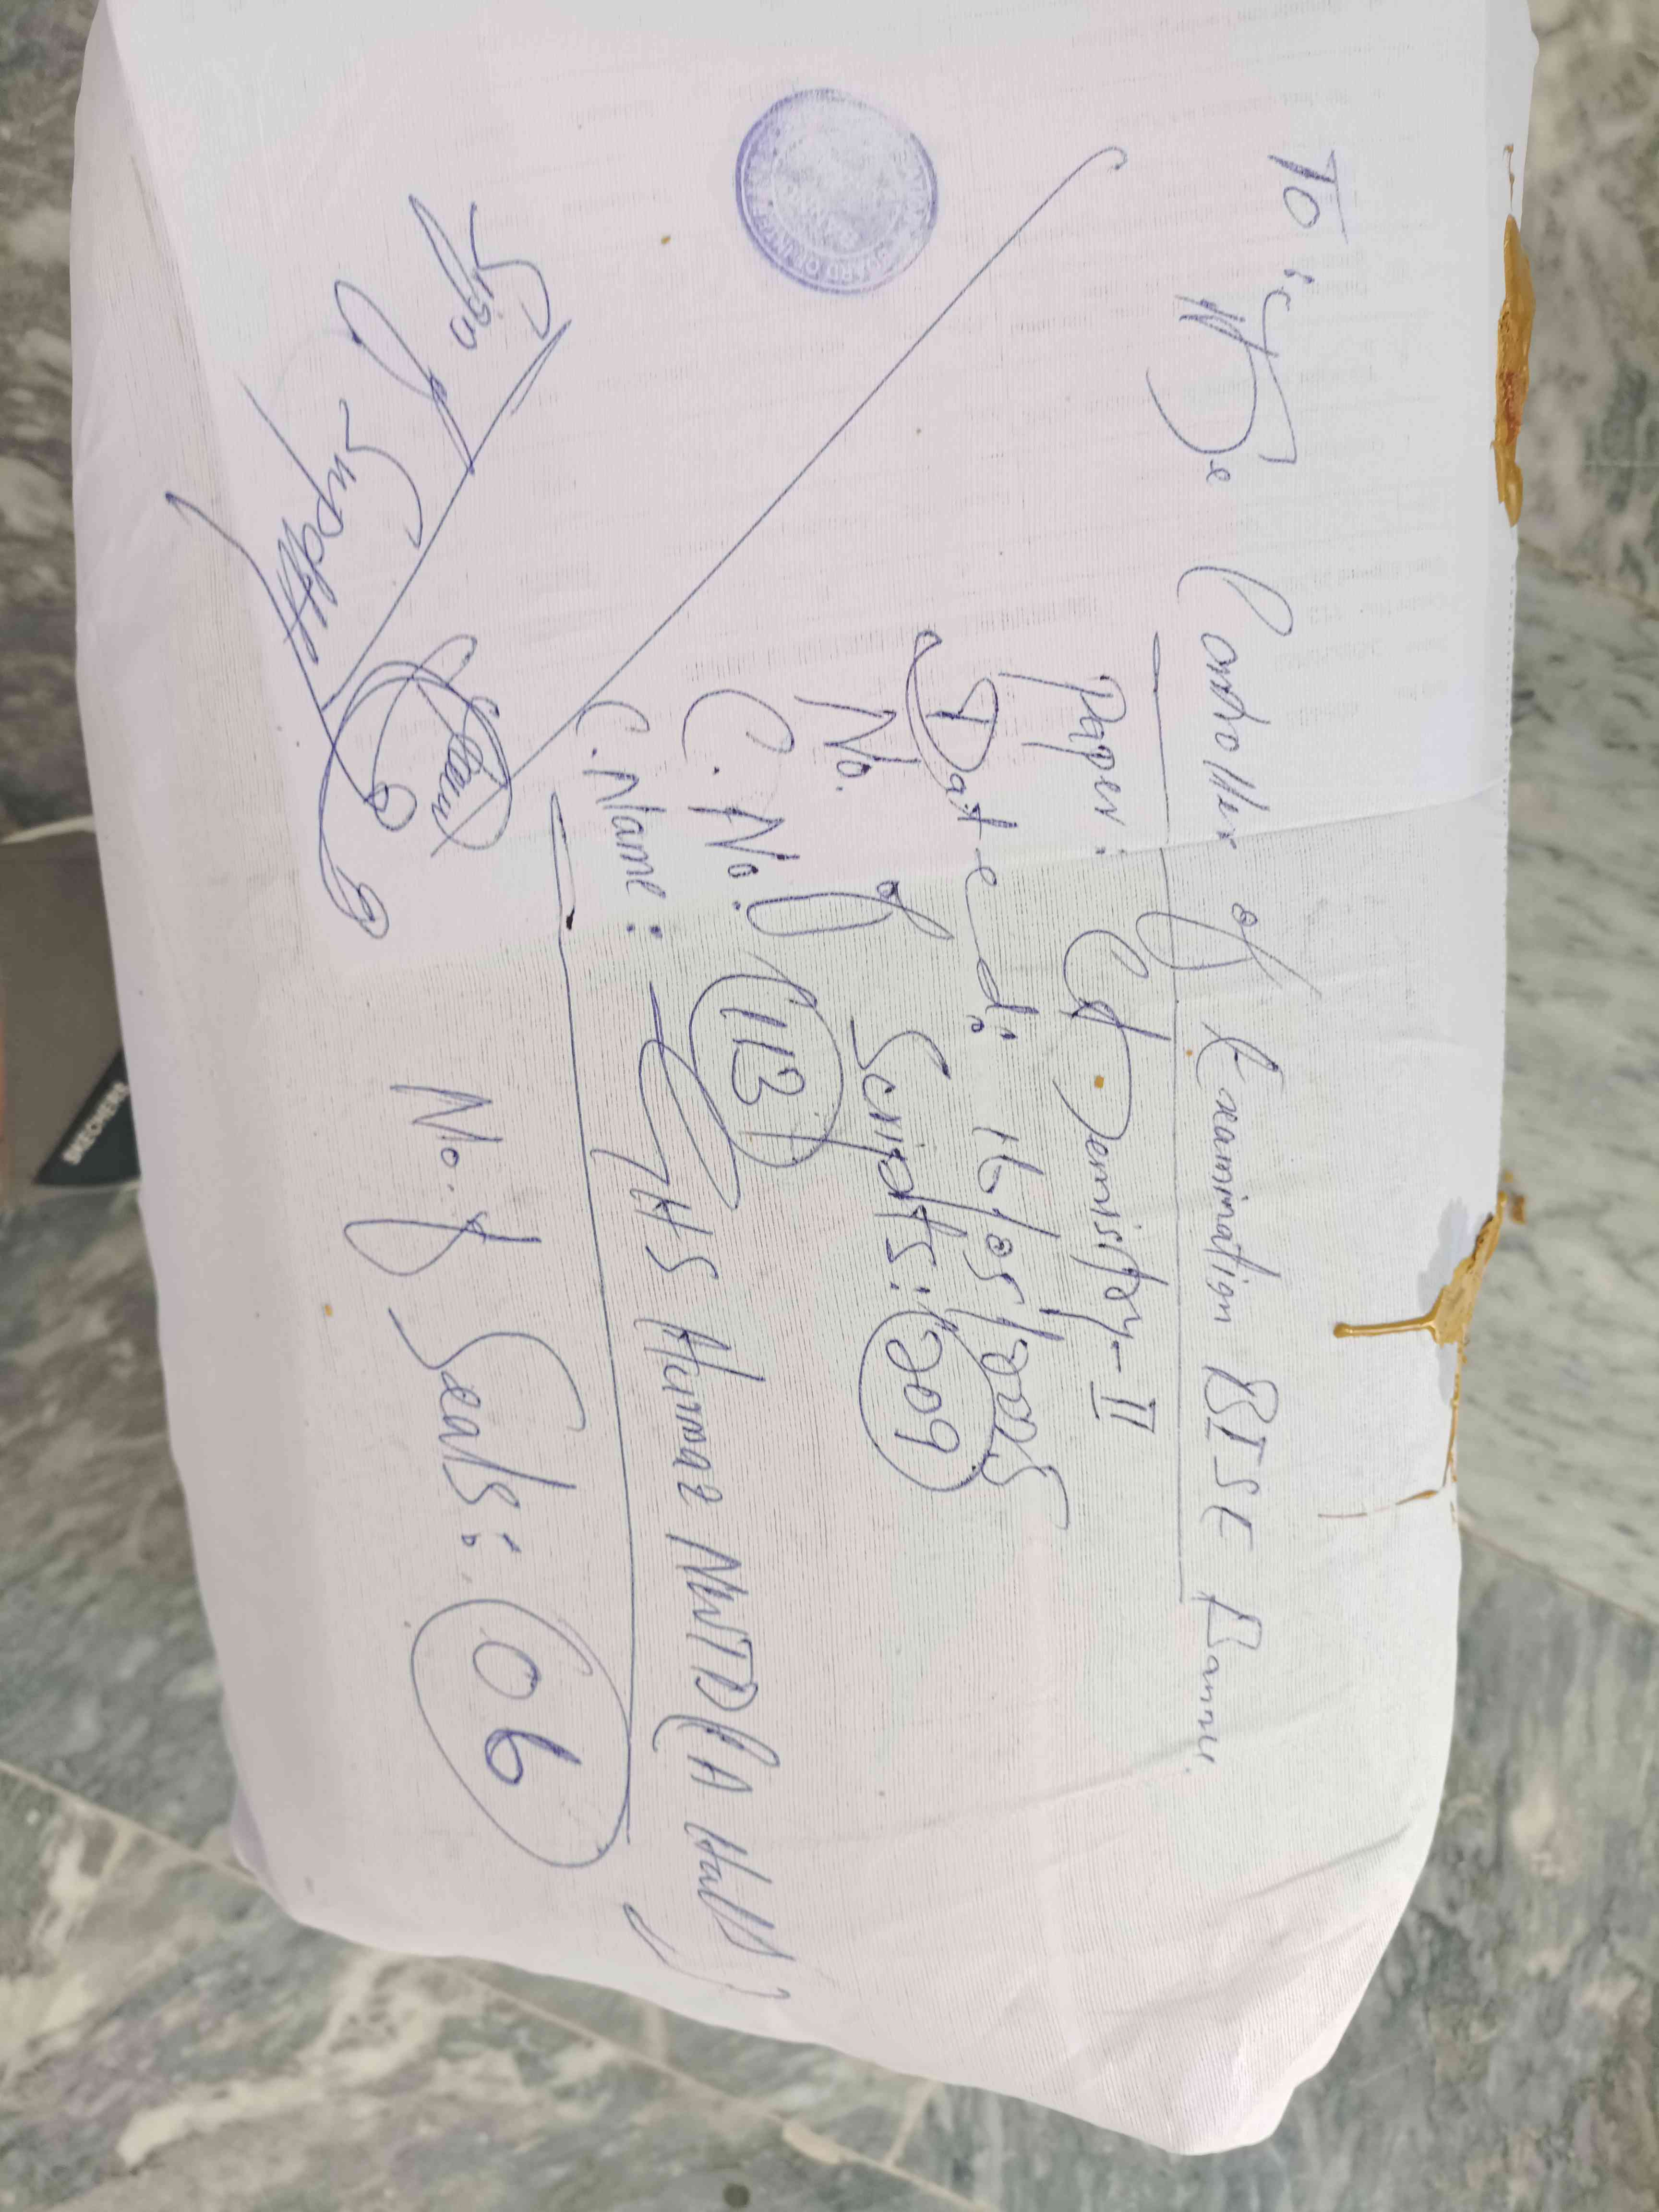 To;
The Controller of Examination BISE Bannu
Paper: Chemistry-II
Dated: 16/05/2025
No. of Scripts: 209
C. No: 113
C. Name: GHS Hurmaz NWTD (A Hall)
No. of Seals: 06
Sign of Supdtt